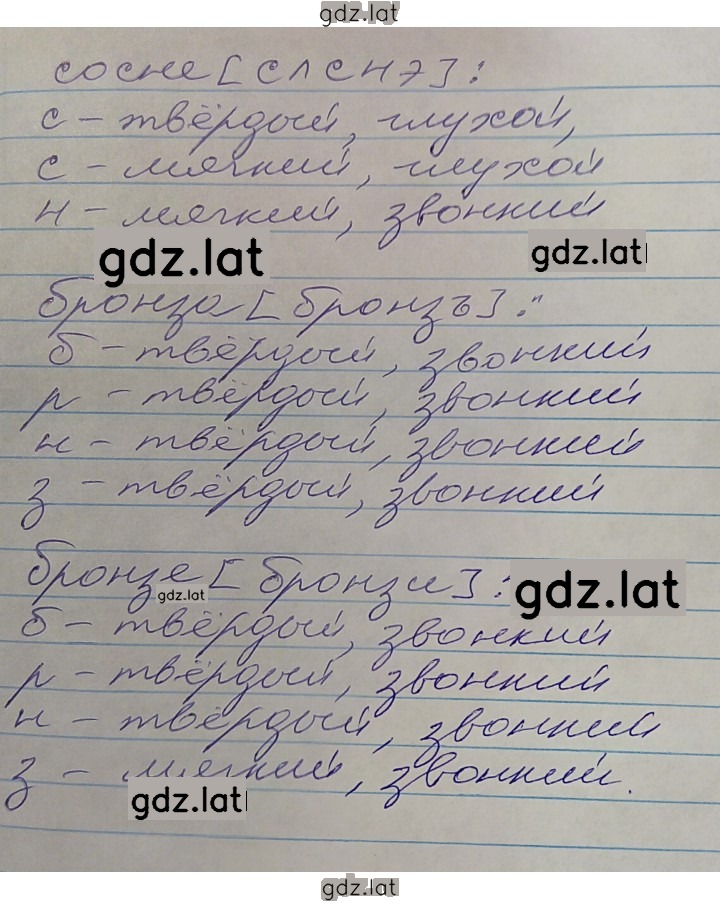 gdz.lat
сосне [сʌснэ]:
с – твёрдый, глухой,
с – мягкий, глухой
н – мягкий, звонкий
gdz.lat gdz.lat
бронза [бронзъ]:
б – твёрдый, звонкий
р – твёрдый, звонкий
н – твёрдый, звонкий
з – твёрдый, звонкий
бронзе [бронзи]:
gdz.lat gdz.lat
б – твёрдый, звонкий
р – твёрдый, звонкий
н – твёрдый, звонкий
з – мягкий, звонкий.
gdz.lat
gdz.lat